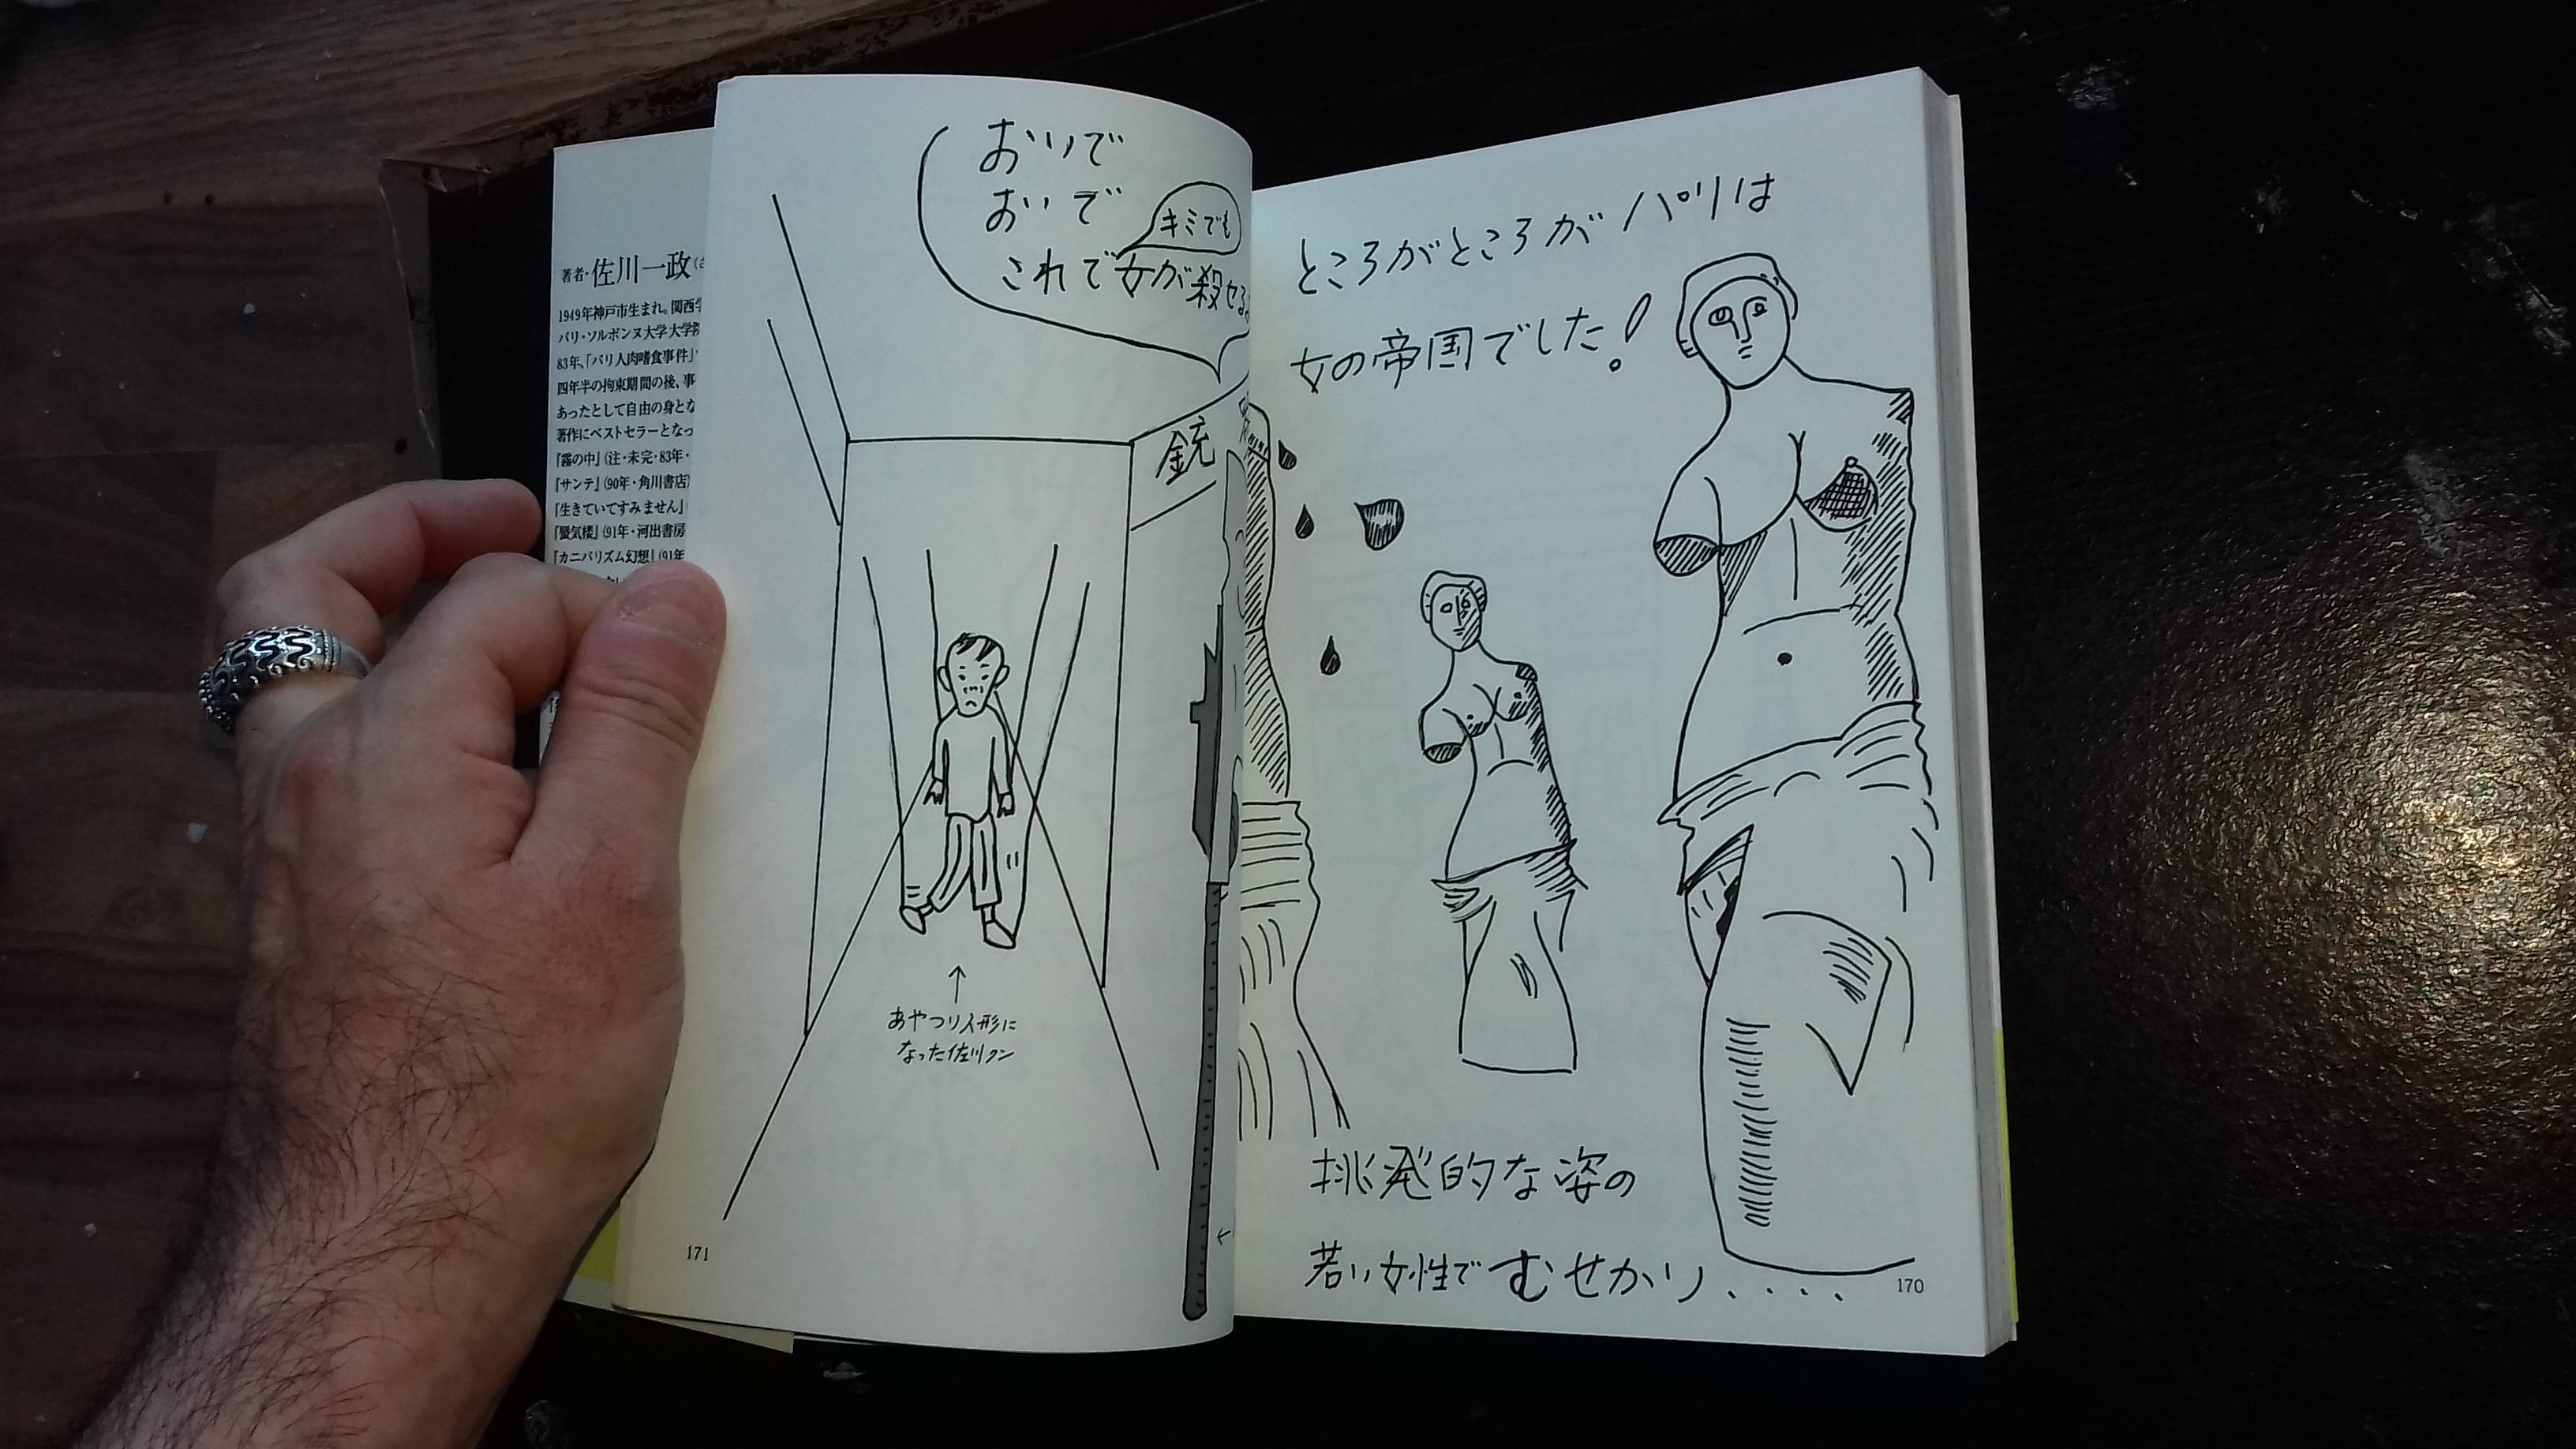 ところがところがパリは
女の帝国でした!
挑発的な姿の
若い女性でむせかり....
170
おいで
おいで
キミでも
これで女が殺せるよ
銃
あやつり人形に
なった佐川クン
171
著者・佐川一政(さ
1949年神戸市生まれ。関西学
パリ・ソルボンヌ大学大学院
83年、「パリ人肉嗜食事件」
四年半の拘束期間の後、事
あったとして自由の身とな
著作にベストセラーとなっ
『霧の中』(注・未完・83年・
『サンテ』(90年・角川書店)
『生きていてすみません』(
『蜃気楼』(91年・河出書房
『カニバリズム幻想』(91年